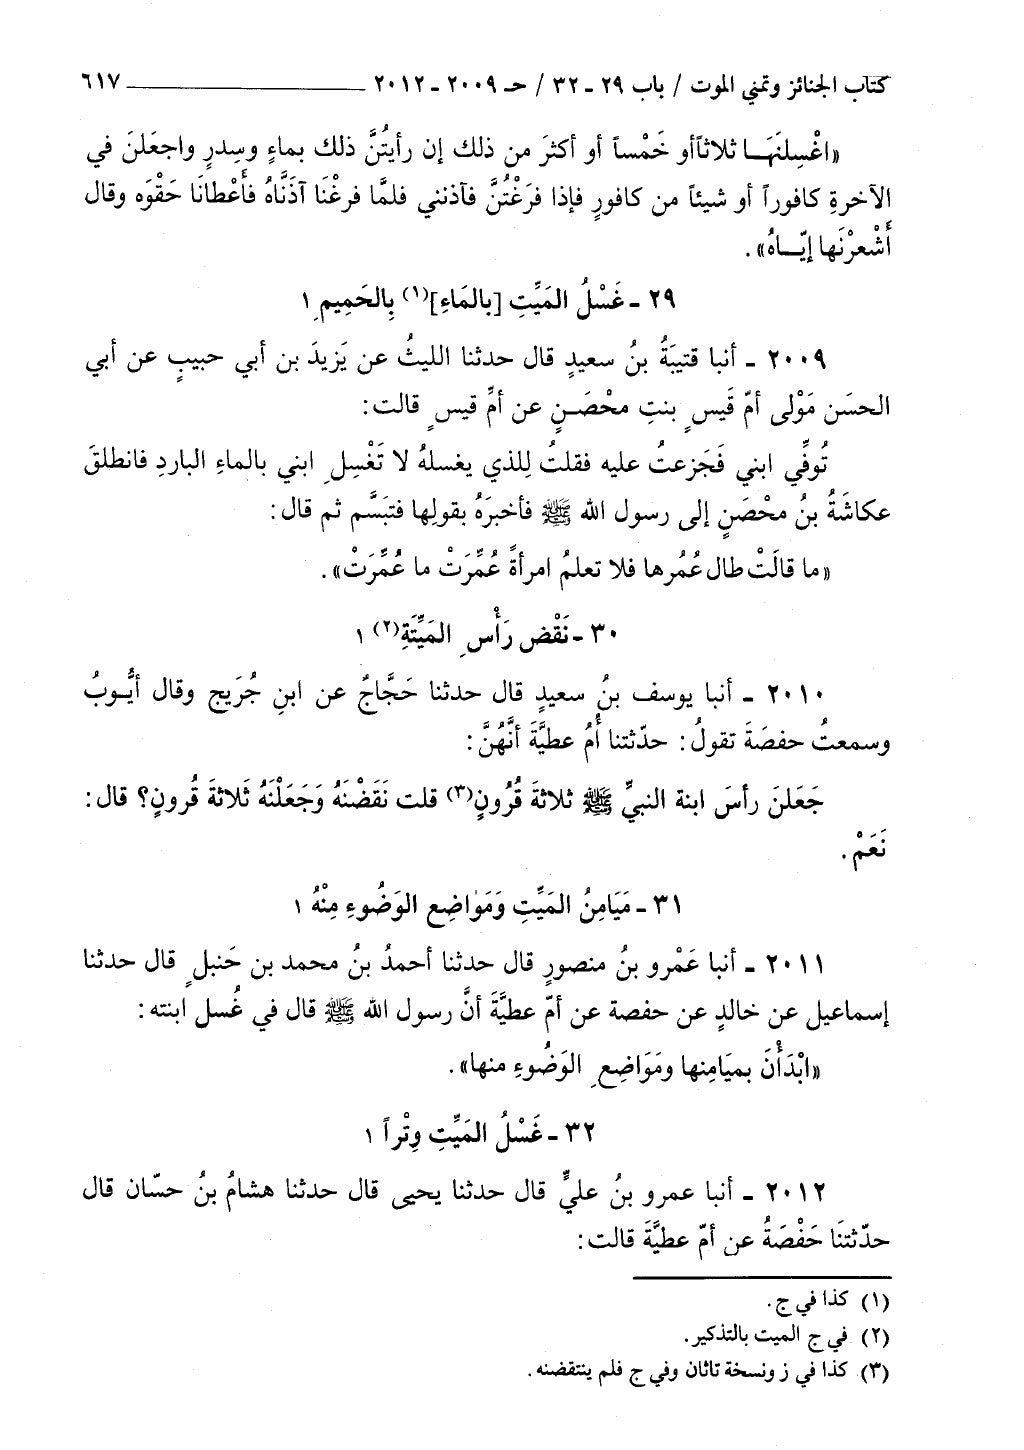 كتاب الجنائز وتمني الموت / باب ٢٩ - ٣٢ / حـ ٢٠٠٩ - ٢٠١٢ ٦١٧
«اغْسِلنَهَـا ثلاثاًأو خَمْساً أو أكثرَ من ذلك إن رأيتُنَّ ذلك بماءٍ وسِدرٍ واجعَلنَ في
الآخرةِ كافوراً أو شيئاً من كافورٍ فإذا فرَغْتُنَّ فآذنني فلمَّا فرغْنَا آذَنَّاهُ فأَعْطانَا حَقْوَه وقال
أَشْعرْنَها إيّـاهُ».
٢٩ - غَسْلُ المَيِّتِ [بالمَاءِ](١) بِالحَمِيمِ ١
٢٠٠٩ - أنبا قتيبَةُ بنُ سعيدٍ قال حدثنا الليثُ عن يَزيدَ بن أبي حبيبٍ عن أبي
الحسَن مَوْلى أمّ قَيسٍ بنتِ محْصَـنٍ عن أمِّ قيسٍ قالت:
تُوفِّي ابني فَجَزعتُ عليه فقلتُ لِلذي يغسلهُ لا تَغْسِلِ ابني بالماءِ الباردِ فانطلقَ
عكاشَةُ بنُ محْصَنٍ إلى رسول الله ﷺ فأخبرَهُ بقولِها فتبَسَّم ثم قال:
«ما قالَتْ طال عُمُرها فلا تعلمُ امرأةً عُمِّرَتْ ما عُمِّرَتْ».
٣٠ - نَقْض رَأْسِ المَيِّتَةِ(٢) ١
٢٠١٠ - أنبا يوسف بنُ سعيدٍ قال حدثنا حَجَّاجُ عن ابنِ جُرَيج وقال أيُّـوبُ
وسمعتُ حفصَةَ تقولُ: حدّثتنا أُمُ عطيَّةَ أنَّهُنَّ:
جَعَلنَ رأسَ ابنة النبيِّ ﷺ ثلاثةَ قُرُونٍ(٣) قلت نَقَضْنَهُ وَجَعَلْنَهُ ثَلاثةَ قُرونٍ؟ قال:
نَعَمْ.
٣١ - مَيَامِنُ المَيِّتِ وَمَوٰاضِع الوَضُوءِ مِنْهُ ١
٢٠١١ - أنبا عَمْرو بنُ منصورٍ قال حدثنا أحمدُ بنُ محمد بن حَنبلٍ قال حدثنا
إسماعيل عن خالدٍ عن حفصة عن أمّ عطيَّةَ أنَّ رسول الله ﷺ قال في غُسل ابنته:
«ابْدَأْنَ بميَامِنها ومَوَاضِعِ الوَضُوءِ منها».
٣٢ - غَسْلُ المَيِّتِ وِتْراً ١
٢٠١٢ - أنبا عمرو بنُ عليٍّ قال حدثنا يحيى قال حدثنا هشامُ بنُ حسّان قال
حدّثتنَا حَفْصَةُ عن أمّ عطيَّةَ قالت:
(١) كذا في ج.
(٢) في ج الميت بالتذكير.
(٣) كذا في ز ونسخة تاثان وفي ج فلم ينتقضنه.